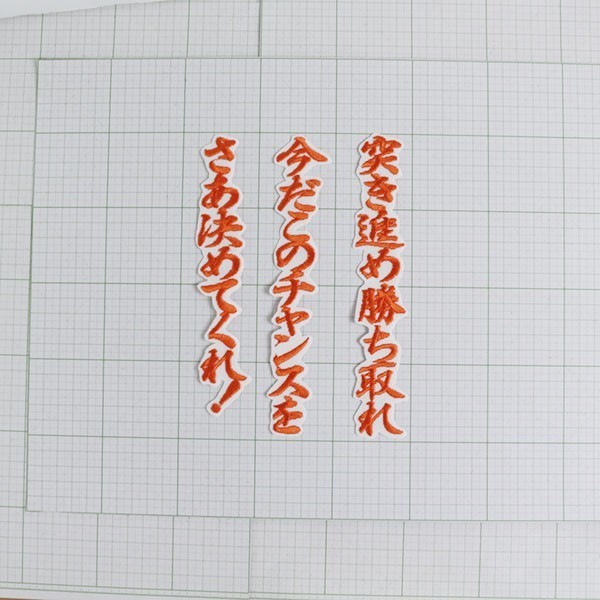 突き進め勝ち取れ
今だこのチャンスを
さあ決めてくれ！